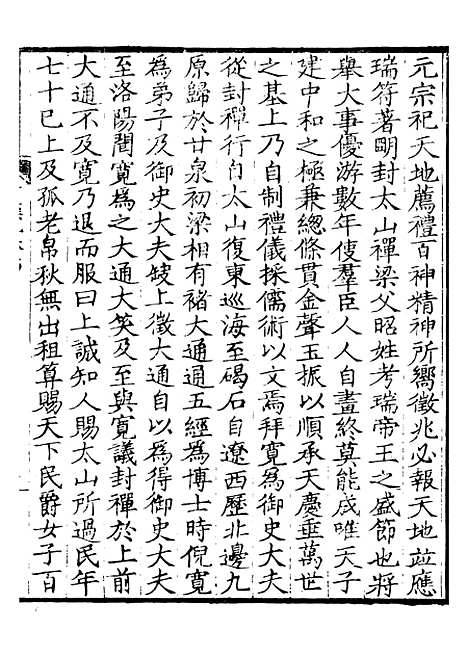 元宗祀天地薦禮百神精神所嚮徵兆必報天地並應
瑞符著明封太山禪梁父昭姓考瑞帝王之盛節也將
舉大事優游數年使羣臣人人自盡終莫能成唯天子
建中和之極兼緫條貫金聲玉振以順承天慶垂萬世
之基上乃自制禮儀採儒術以文焉拜寬為御史大夫
從封禪行自太山復東巡海至碣石自遼西歷北邊九
原歸於甘泉初梁相有褚大通通五經為博士時倪寬
為弟子及御史大夫缺上徵大通自以為得御史大夫
至洛陽聞寬為之大通大笑及至與寬議封禪於上前
大通不及寬乃退而服曰上誠知人賜太山所過民年
七十已上及孤老帛秋無出租算賜天下民爵女子百